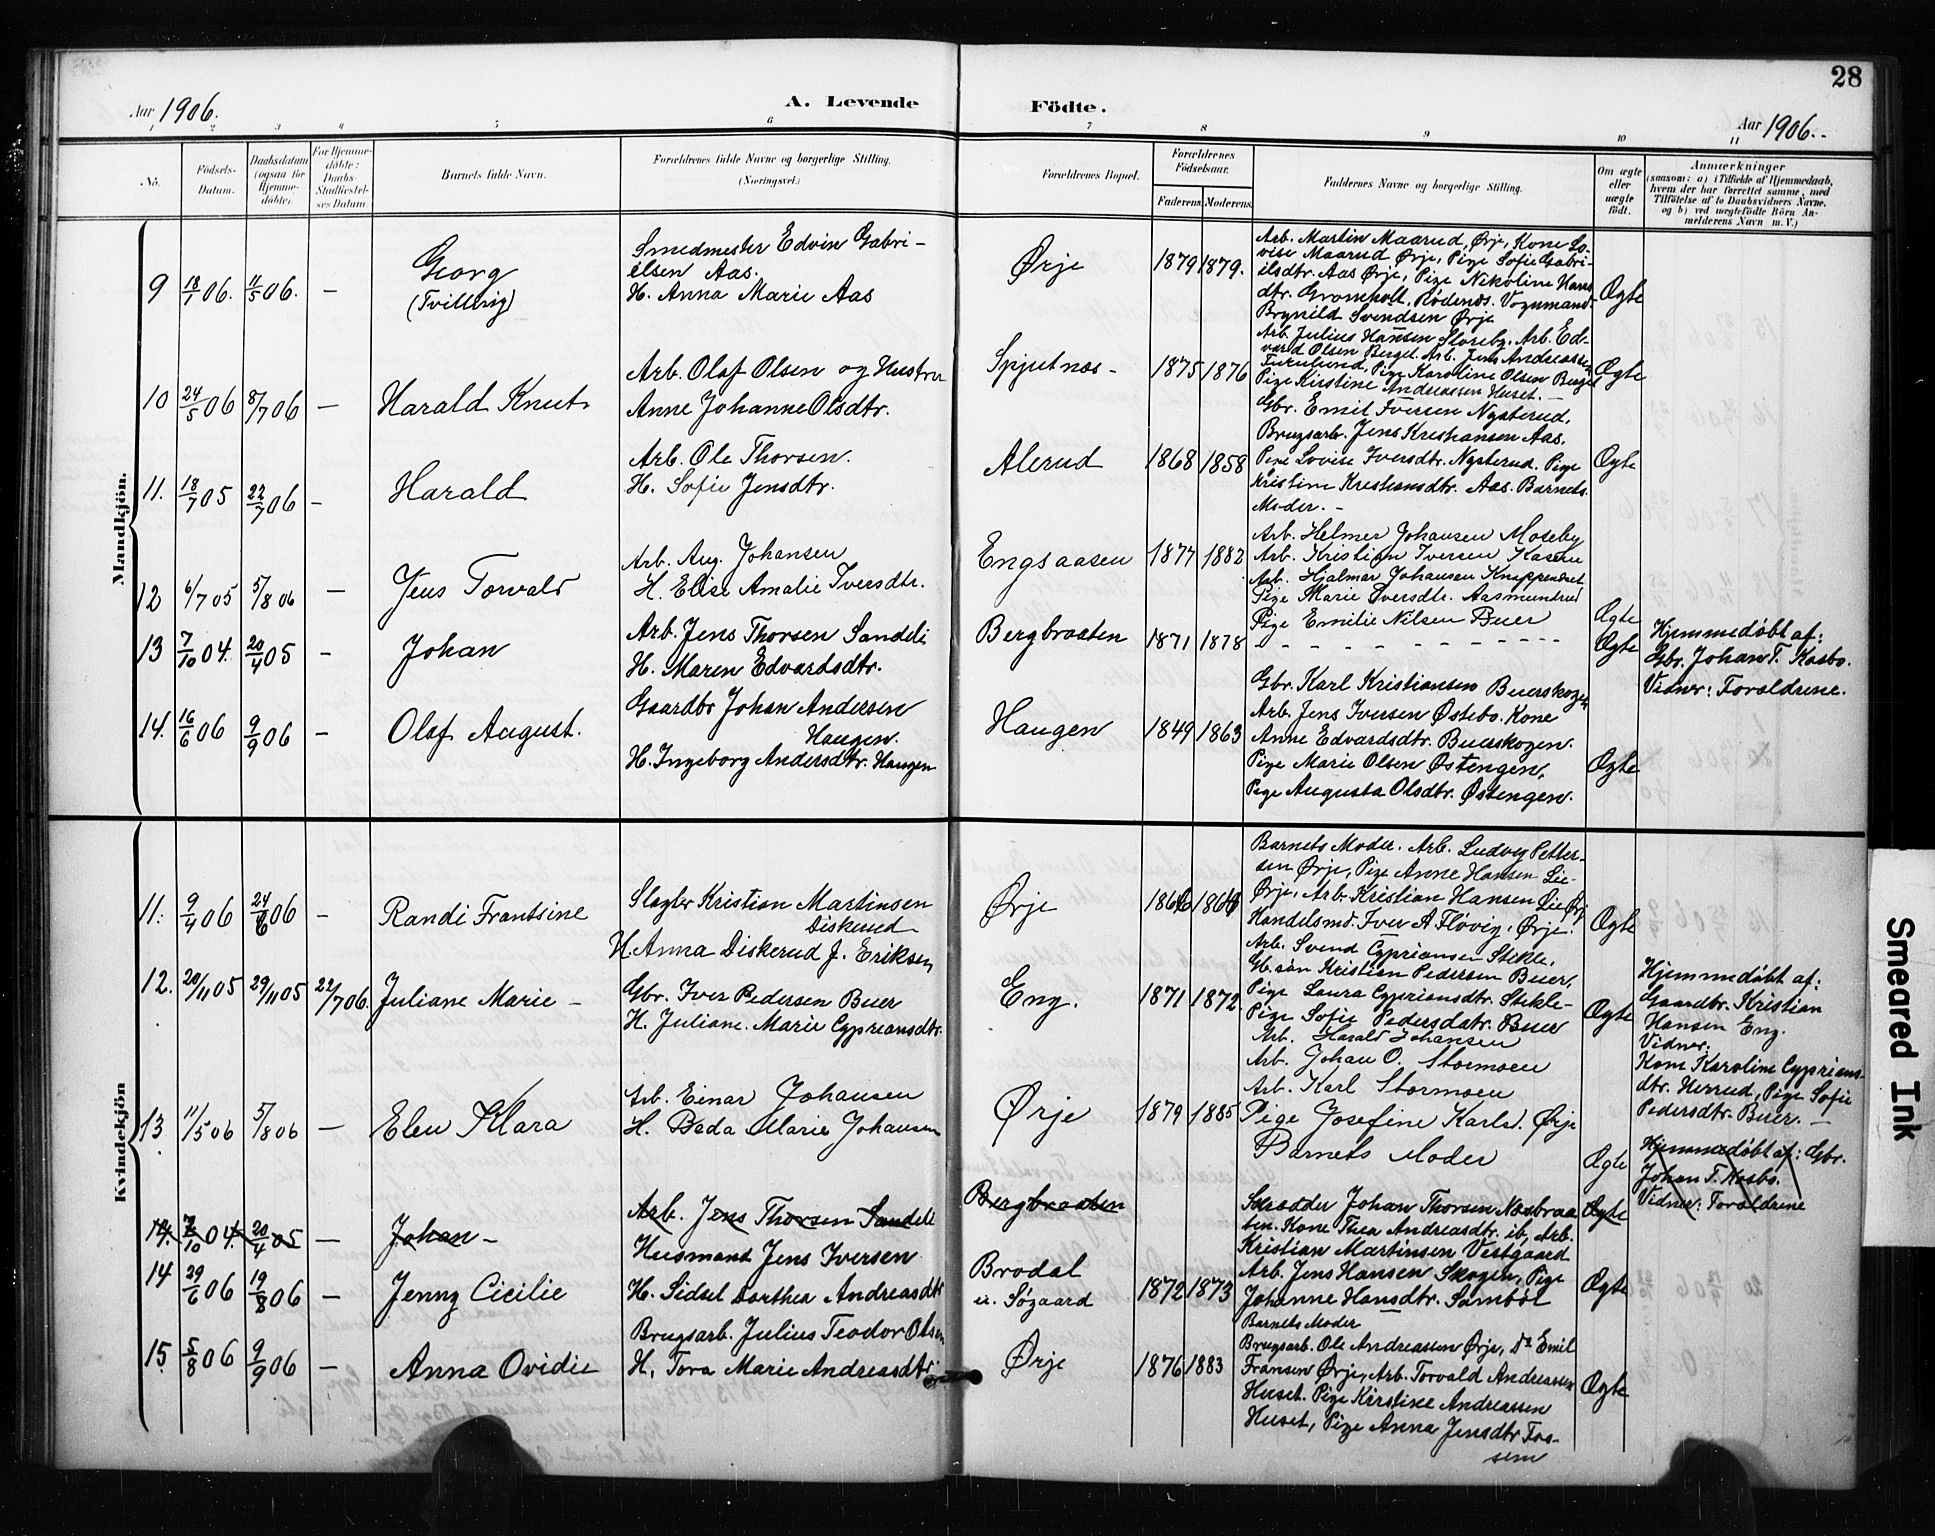 28
Aar 1906.
A. Levende
Födte.
Aar 1906.
1 2 3 4 5 6 7 8 9 10 11
No.
Födsels-
Datum.
Daabsdatum
(ogsaa for
Hjemme-
döbte).
For Hjemme-
döbte:
Daabs-
Stadfæstel-
ses Datum.
Barnets fulde Navn.
Forældrenes fulde Navne og borgerlige Stilling.
(Næringsvei.)
Forældrenes Bopæl.
Forældrenes
Födselsaar.
Faderens. Moderens.
Faddernes Navne og borgerlige Stilling.
Om ægte
eller
uægte
födt.
Anmærkninger
(saasom: a) i Tilfælde af Hjemmedaab,
hvem der har forrettet samme, med
Tilföielse af to Daabsvidners Navne.
og b) ved uægtefödte Börn An-
melderens Navn m. V.)
Mandkjön.
9 18/1 06. 11/5 06. –
Georg
(Tvilling)
Smedmester Edvin Gabri-
elsen Aas.
H. Anna Marie Aas
Ørje
1879 1879.
Arb. Martin Maarud, Ørje, Kone Lo-
vise Maarud Ørje, Pige Sofie Gabri-
elsdtr. Aas Ørje, Pige Nikoline Hans
dtr. Gromholt, Rødenæs. Vognmand
Brynild Svendsen Ørje
Ægte
10 24/5 06 8/7 06 –
Harald Knut
Arb. Olaf Olsen og Hustru
Anne Johanne Olsdtr.
Spjutnæs-
1875 1876
Arb. Julius Hansen Storeby. Arb. Ed-
vard Olsen Berget. Arb. Jens Andreassen
Furulund, Pige Karoline Olsen Berget
Pige Kirstine Andreassen Huset. –
Ægte
11. 18/7 05 22/7 06 –
Harald
Arb. Ole Thorsen.
H. Sofie Jensdtr.
Alerud
1868 1858
Gbr. Emil Iversen Nysterud,
Brugsarb. Jens Kristiansen Aas.
Pige Lovise Iversdtr. Nysterud. Pige
Kristine Kristiansdtr. Aas. Barnets
Moder. –
Ægte
12 6/7 05 5/8 06 –
Jens Torvald
Arb. Aug. Johansen
H. Elise Amalie Iversdtr.
Engsaasen
1877 1882
Arb. Helmer Johansen Moseby
Arb. Kristian Iversen Kasen
Arb. Hjalmar Johansen
Pige Marie Iversdtr. Aasmundrud
Pige Emilie Nilsen Buer
Ægte
13 7/10 04. 20/4 05 –
Johan
Arb. Jens Thorsen Sandeli
H. Maren Edvardsdtr.
Bergbraaten
1871 1878
– – – – – – – – – – –
Ægte
Hjemmedøbt af:
Gbr. Johan T. Kasbo.
Vidner: Forældrene.
14. 16/6 06 9/9 06 –
Olaf August.
Gaardbr Johan Andersen
Haugen.
H. Ingeborg Andersdtr. Haugen
Haugen
1849 1863
Gbr. Karl Kristiansen Buerskogen
Arb. Jens Iversen Østebo. Kone
Anne Edvardsdtr. Buerskogen.
Pige Marie Olsen Østengen,
Pige Augusta Olsdtr. Østengen.
Ægte
Kvindekjön
11. 9/4 06 24/6 06 –
Randi Frantsine
Slagter Kristian Martinsen
Diskerud
H. Anna Diskerud f. Eriksen
Ørje
Barnets Moder. Arb. Ludvig Petter-
sen Ørje, Pige Anne Hansen Lie-
Ørje, Arb. Kristian Hansen Lie Ørj
Handelsmd. Iver A Fløvig, Ørje.
Ægte
12. 20/11 05 29/11 05 22/7 06.
Juliane Marie –
Gbr. Iver Pedersen Buer
H. Juliane Marie Cypriansdtr.
Eng.
1871 1872
Arb. Svend Cypriansen Stikle,
Gb. søn Kristian Pedersen Buer,
Pige Laura Cypriansdtr. Stikle-
Pige Sofie Pedersdatr. Buer
Ægte
Hjemmedøbt af:
Gaardbr. Kristian
Hansen Eng.
Vidner:
Kone Karoline Cyprians-
dtr. Herrud, Pige Sofie
Pedersdtr. Buer. –
13 11/5 06 5/8 06 –
Elen Klara
Arb. Einar Johansen
H. Beda Marie Johansen
Ørje
1879 1885
Arb. Harald Johansen
Arb. Johan O. Stormoen
Arb. Karl Stormoen
Pige Josefine Karls. Ørje
Barnets Moder
Ægte
14. 7/10 04. 20/4 05 –
Johan –
Arb. Jens Thorsen Sandeli
Bergbraaten
Ægte
Hjemmedøbt af: Gbr.
Johan T. Kasbo.
Vidner: Forældrene
14 29/6 06 19/8 06 –
Jenny Cicilie
Husmand Jens Iversen
H. Sidsel Dorthea Andreasdtr
Brødal
u. Søgaard
1872 1873
Skrædder Johan Thorsen Næsbraa
ten. Kone Thea Andreasdtr. ib, Arb.
Kristian Martinsen Vestgaard
Arb. Jens Hansen Skogen, Pige
Johanne Hansdtr. Sambøl
Ægte
15. 5/8 06 9/9 06 –
Anna Ovidie
Brugsarb. Julius Teodor Olsen
H. Tora Marie Andreasdtr.
Ørje
1876 1883
Barnets Moder
Brugsarb. Ole Andreassen Ørje, Do Emil
Fransen Ørje, Arb. Torvald Andreassen
Huset. Pige Kirstine Andreassen
Huset, Pige Anna Jensdtr Fos-
sem
Ægte
Smeared Ink